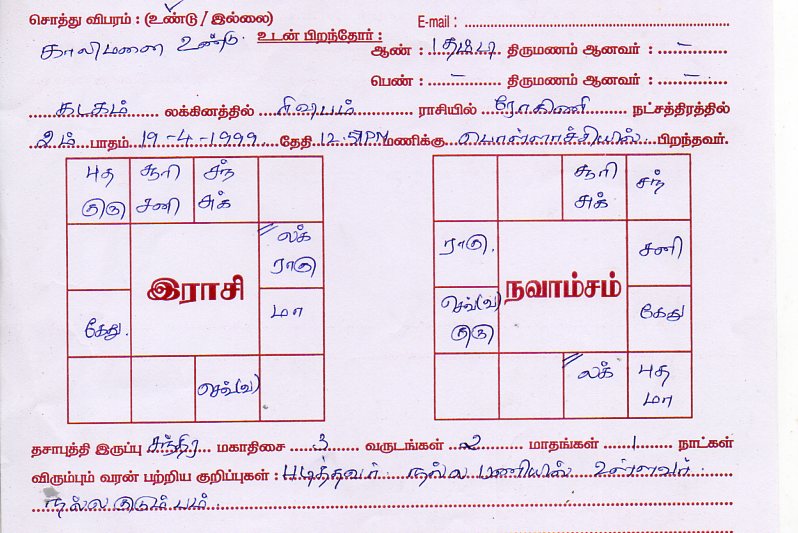 சொத்து விபரம் : (உண்டு / இல்லை) E-mail :
காலிமனை உண்டு. உடன் பிறந்தோர் : ஆண் : 1 தம்பி திருமணம் ஆனவர் : –
பெண் : – திருமணம் ஆனவர் : –
கடகம் லக்கினத்தில் ரிஷபம் ராசியில் ரோகிணி நட்சத்திரத்தில்
2ம் பாதம் 19-4-1999 தேதி 12.51PM மணிக்கு பொள்ளாச்சியில் பிறந்தவர்.
புத சூரி சந் சூரி சந்
குரு சனி சுக் சுக்
லக் ராகு. சனி
ராகு
இராசி நவாம்சம்
கேது. மா செவ்(வ) கேது
குரு
செவ்(வ) லக் புத
மா
தசாபுத்தி இருப்பு சந்திர மகாதிசை 3 வருடங்கள் 2 மாதங்கள் 1 நாட்கள்
விரும்பும் வரன் பற்றிய குறிப்புகள் : படித்தவர் நல்ல பணியில் உள்ளவர்
நல்ல குடும்பம்